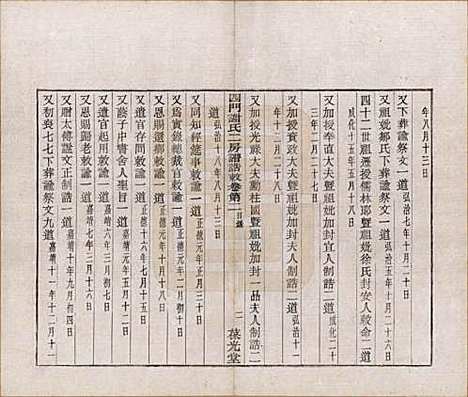 年八月十三日
又下葬諭祭文一道弘治七年十二月二十日
又祖妣鄒氏下葬諭祭文一道弘治五年十月二十六日
四十二世祖遷授儒林郎暨祖妣徐氏封安人敕命二道
成化十五年五月十八日
又加授奉直大夫暨祖妣加封宜人制誥二道成化二十
三年二月二十七日
又加授資政大夫暨祖妣加封夫人制誥二道弘治十一
年十二月二十二日
又加授光祿大夫勳柱國暨祖妣加封一品夫人制誥二
道弘治十八年八月十三日
四門謝氏二房譜誥敕卷第二
目錄
二
葆光堂
又同知經筵事敕諭一道正德元年二月三日
又為實錄總裁官敕諭一道正德元年二月二日
又恩賜還鄉敕諭一道正德元年十月十八日
又遺官存問敕諭一道正德十六年七月十五日
又蔭子中書舍人聖旨一道嘉靖元年五月十二日
又遺官起用敕諭一道嘉靖六年二月二十二日
又恩賜歸老敕諭一道嘉靖七年三月十六日
又贈太傅諡文正制誥一道嘉靖十年九月初四日
又初喪七七下葬諭祭文九道嘉靖十一年十二月十一